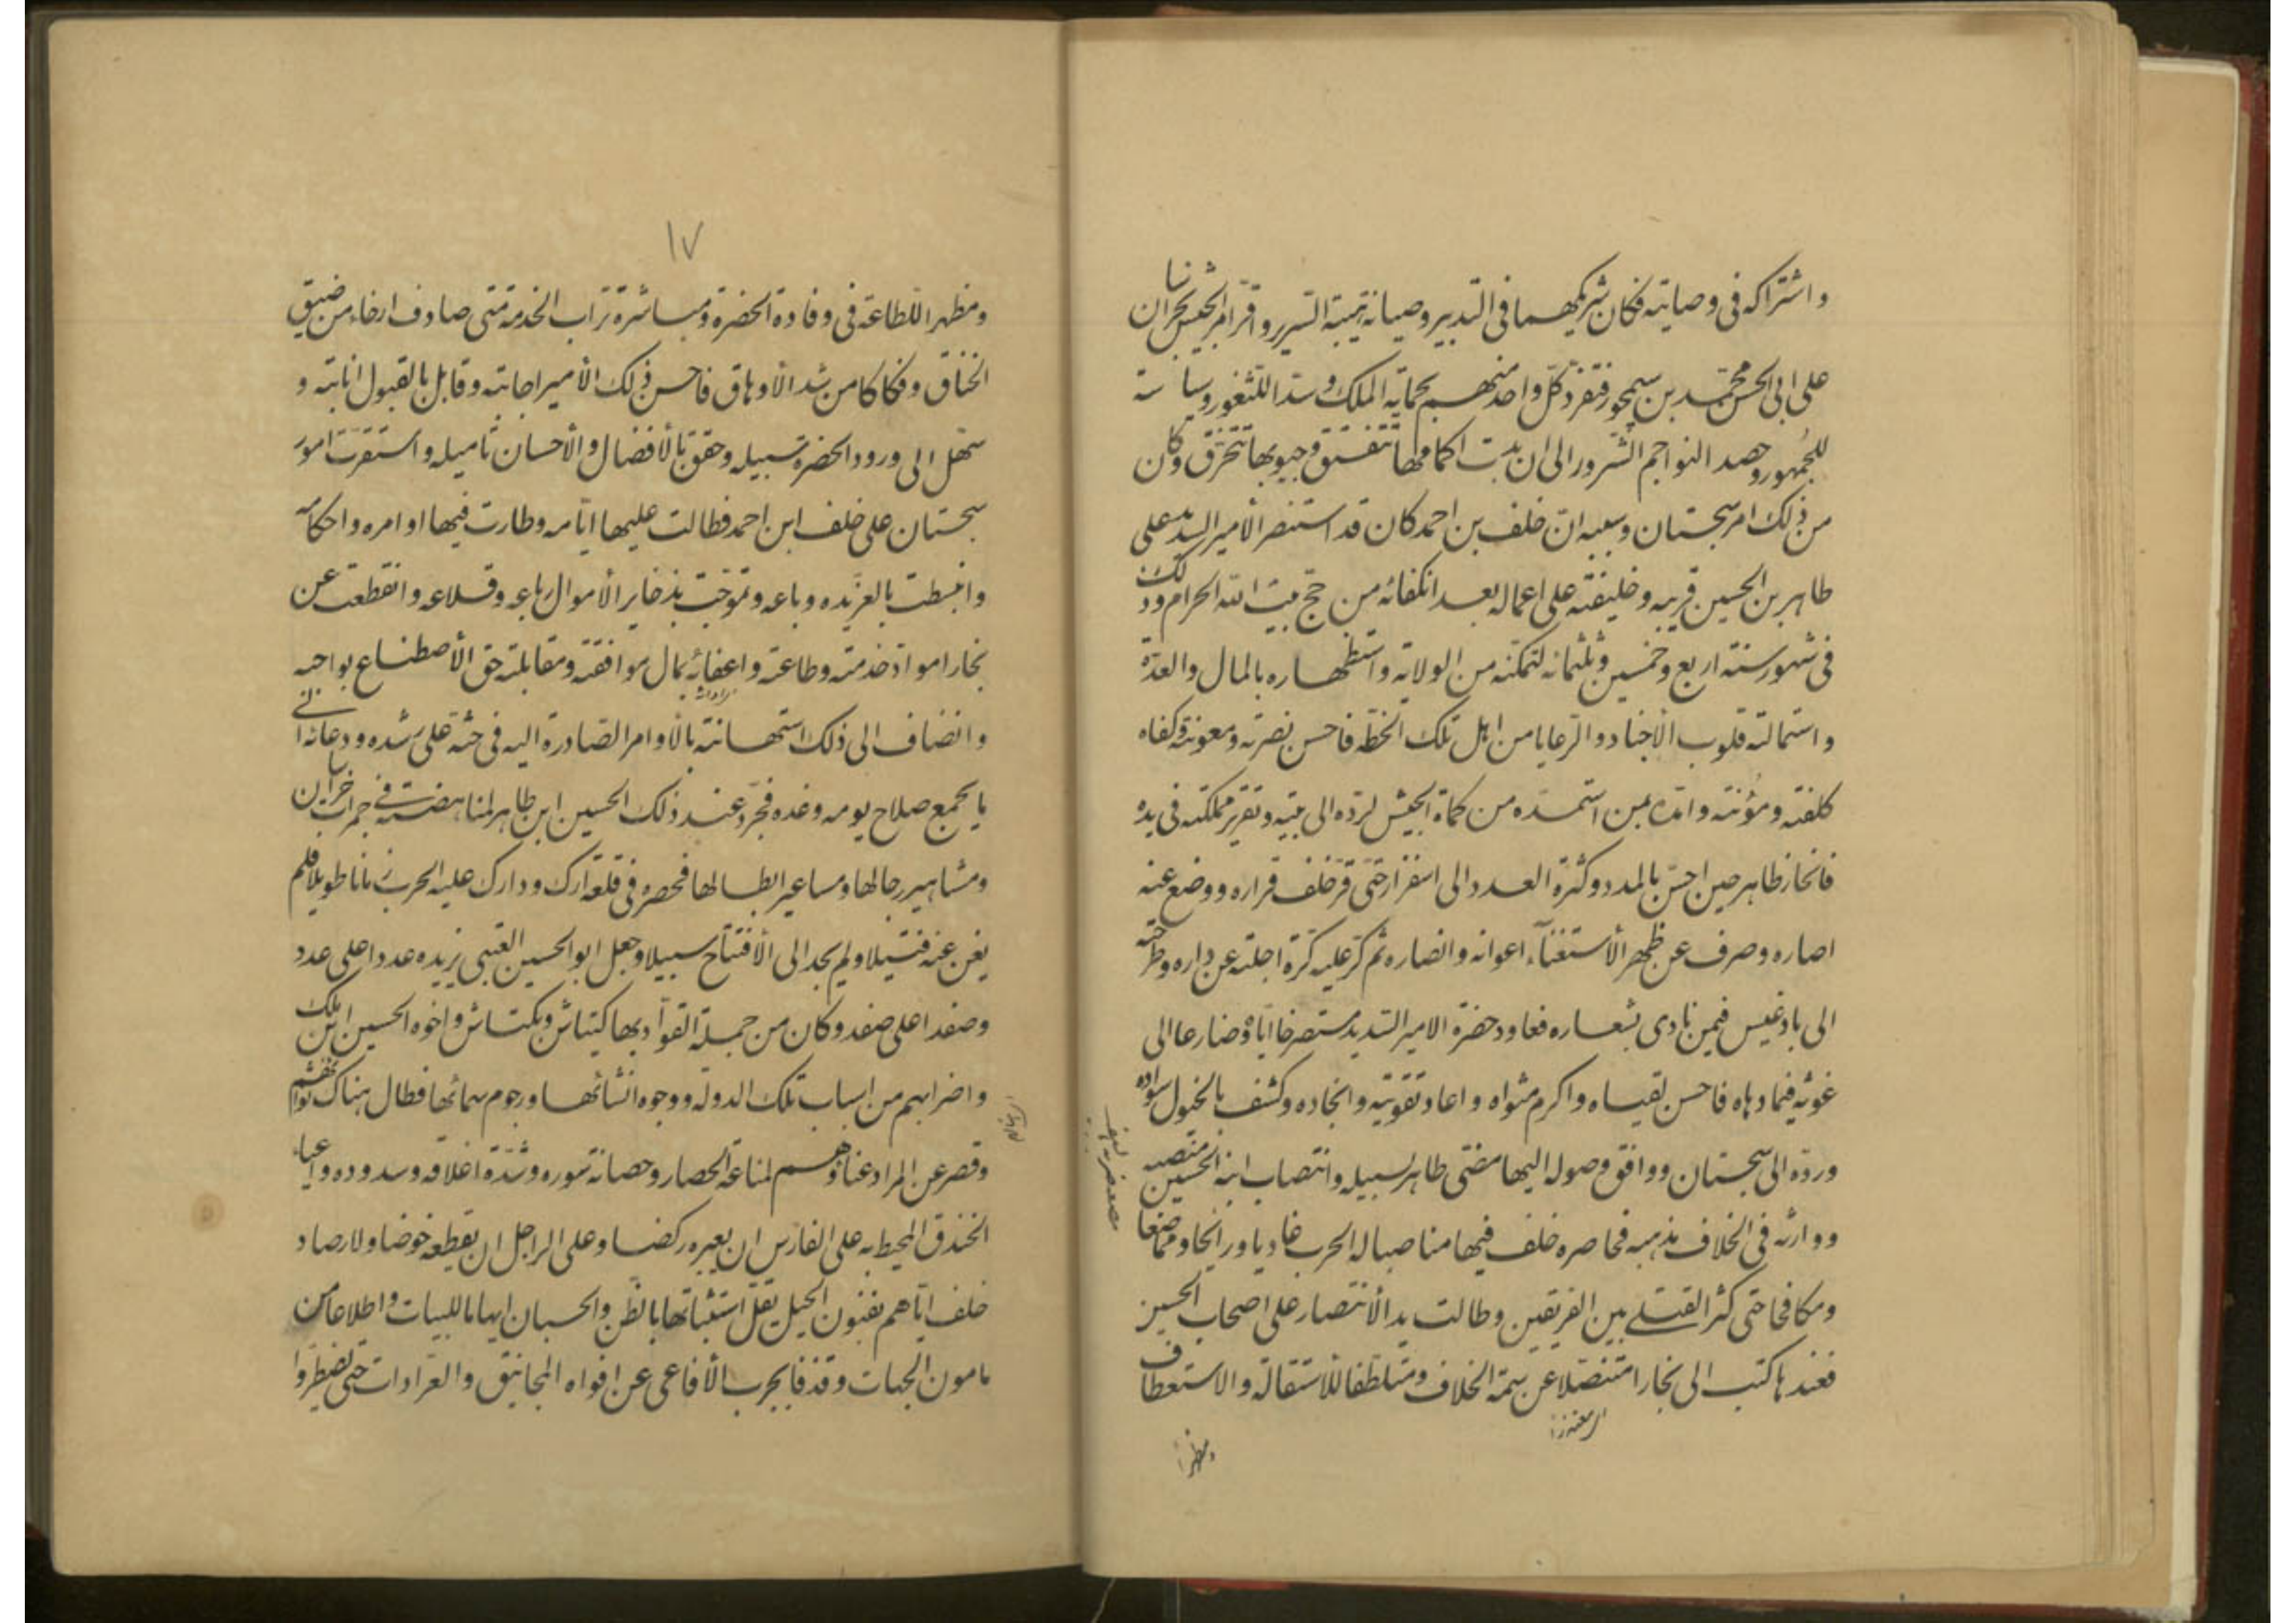 واشتراكه فى وصايته فكان شريكهما فى التدبير وصيانة هيبة السرير واقر امر الجيش بخراسان
على ابى الحسن محمّد بن سيمجور فتفرد كلّ واحد منهم بحماية الملك وسدّ اللثغور وسياسة
للجُمهور وحصد النواجم الشّرور الى ان بدت اكمامها تتفتق وجيوبها تتخرّق وكان
من ذلك امر سجستان وسببه انّ خلف بن احمد كان قد استنصر الأمير السديد على
طاهر بن الحسين قريبه وخليفته على اعماله بعد انكفائه من حجّ بيت الله الحرام وذلك
فى شهور سنته اربع وخمسين وثلثمائه لتمكّنه من الولاية واستظهاره بالمال والعدّة
واستمالته قلوب الأجناد والرّعايا من اهل تلك الخطّه فاحسن نصرته ومعونته وكفاه
كلفته ومؤنته وامدّه بمن استمدّه من كماة الجيش لردّه الى بيته وتقرير مملكته فى يده
فانحاز طاهر حين احسّ بالمدد وكثرة العدد الى اسفزار حتّى قرّ خلف قراره ووضع عنه
اصاره وصرف عن ظهر الأستغنآء اعوانه وانصاره ثم كرّ عليه كرّة اجلته عن داره وطرحته
الى بادغيس فيمن نادى بشعاره فعاود حضرة الامير السّديد مستصرخا ايّاه وضارعا الى
غوثه فيما دهاه فاحسن لقياه واكرم مثواه واعاد تقويته وانجاده وكشف بالخيول سواده
وردّه الى سجستان ووافق وصوله اليها مضىّ طاهر لسبيله وانتصاب ابنه الحسين منتصبه
ووارثه فى الخلاف مذهبه فحاصره خلف فيها مناصبا له الحرب غاديا ورائحا ومماصعا
ومكافحا حتى كثر القتلى بين الفريقين وطالت يد الأنتصار على اصحاب الحسين
فعندها كتب الى بخارا متنصّلا عن سمة الخلاف ومتلطّفا للأستقالة والاستعطاف
ومظهرا
١٧
ومظهرا للطاعة فى وفادة الحضرة ومباشرة تراب الخدمة متى صادف ارخاء من ضيق
الخناق وفكاكا من شدّ الأوهاق فاحسن ذلك الأمير اجابته وقابل بالقبول انابته و
سهّل الى ورود الحضرة سبيله وحقق بالأفضال والأحسان تأميله واستقرّت امور
سجستان على خلف ابن احمد فطالت عليها ايّامه وطارت فيها اوامره واحكامه
وانبسطت بالعزّ يده وباعه وتموّجت بذخاير الأموال رباعه وقلاعه وانقطعت عن
بخارا موادّ خدمته وطاعته واعفائه بمال موافقته ومقابلته حق الأصطناع بواجبه
وانضاف الى ذلك استهانته بالأوامر الصّادرة اليه فى حثّه على رشده ودعائه الى
ما يجمع صلاح يومه وغده فجرّد عند ذلك الحسين ابن طاهر لمناهضته فى جمرات خراسان
ومشاهير رجالها ومساعير ابطالها فحصره فى قلعة ارك ودارك عليه الحرب زمانا طويلا فلم
يغن عنه فتيلا ولم يجد الى الأفتتاح سبيلا وجعل ابو الحسين العتبى يزيده عددا على عدد
وصفدا على صفد وكان من جملة القوّاد بها كيتاش وبكتاش واخوه الحسين ابن ملك
واضرابهم من اسباب تلك الدولة ووجوه انشائها ورجوم سمائها فطال هناك ثواؤهم
وقصر عن المراد غناؤهم لمناعة الحصار وحصانة سوره وشدّة اغلاقه وسدوده واعياء
الخندق المحيط به على الفارس ان يعبره ركضا وعلى الراجل ان يقطعه خوضا ولارصاد
خلف ايّاهم بفنون الحيل يقلّ استثباتها بالظّن والحسبان ايهاما للبيات واطلاعا من
مامون الجهات وقذفا بجرب الأفاعى عن افواه المجانيق والعرّادات حتّى يضطرّوا